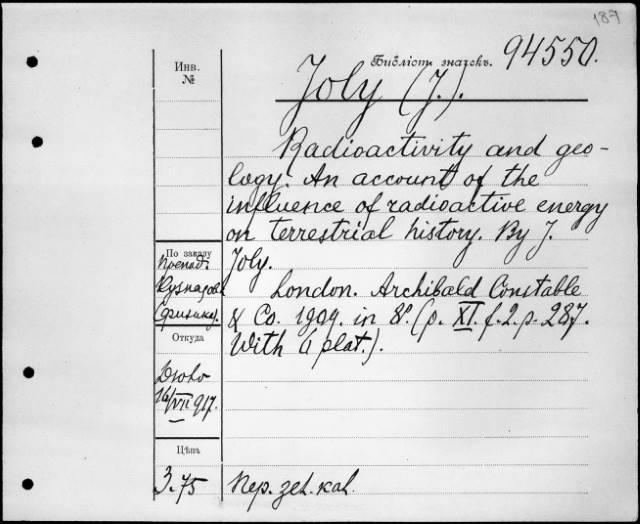 187
Библіот. значекъ. 94550.
Инв.
№
Joly (J.).
Radioactivity and geo-
logy. An account of the
influence of radioactive energy
on terrestrial history. By J.
Joly.
London. Archibald Constable
& Co. 1909. in 8º. (p. XI. f. 2. p. 287.
With 6 plat.).
По заказу
Препод.
(физику).
Откуда
16/VII 917.
Цѣна
3.75
Пер. зел. кал.